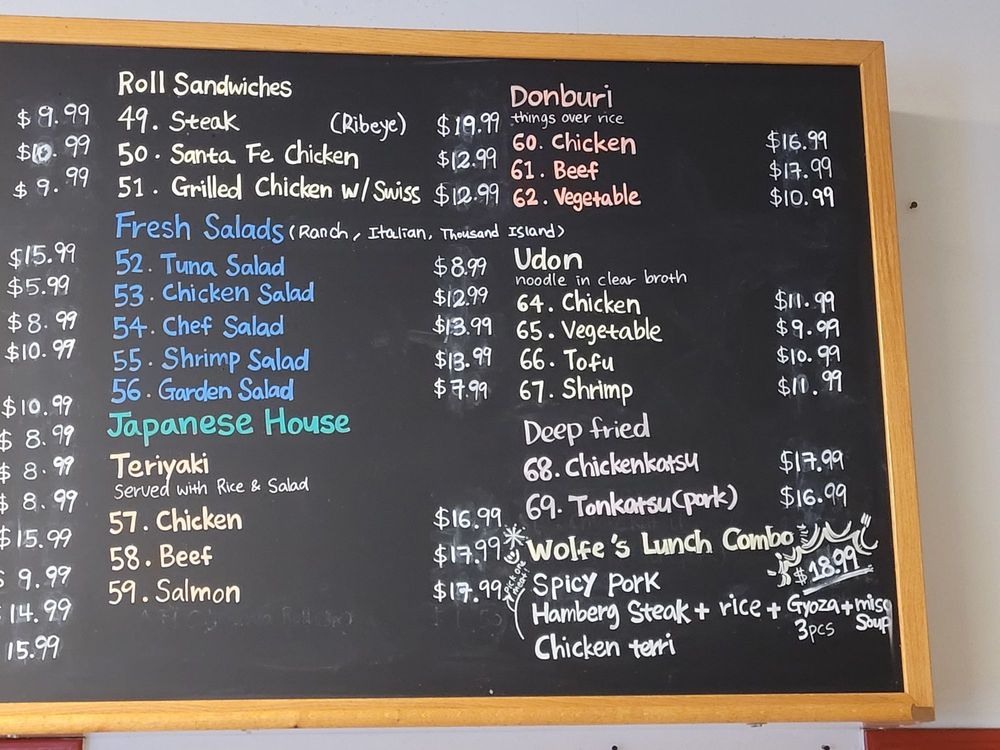 $9.99
$10.99
$9.99
$15.99
$5.99
$8.99
$10.99
$10.99
$8.99
$8.99
$8.99
$15.99
$9.99
$14.99
15.99
Roll Sandwiches
49. Steak (Ribeye) $19.99
50. Santa Fe Chicken $12.99
51. Grilled Chicken w/Swiss $12.99
Fresh Salads (Ranch, Italian, Thousand Island)
52. Tuna Salad $8.99
53. Chicken Salad $12.99
54. Chef Salad $13.99
55. Shrimp Salad $13.99
56. Garden Salad $7.99
Japanese House
Teriyaki
Served with Rice & Salad
57. Chicken $16.99
58. Beef $17.99
59. Salmon $17.99
Donburi
things over rice
60. Chicken $16.99
61. Beef $17.99
62. Vegetable $10.99
Udon
noodle in clear broth
64. Chicken $11.99
65. Vegetable $9.99
66. Tofu $10.99
67. Shrimp $11.99
Deep fried
68. Chickenkatsu $17.99
69. Tonkatsu(pork) $16.99
Wolfe's Lunch Combo $18.99
Pick one meat!
Spicy Pork
Hamberg Steak + rice + Gyoza + miso
3pcs Soup
Chicken terri